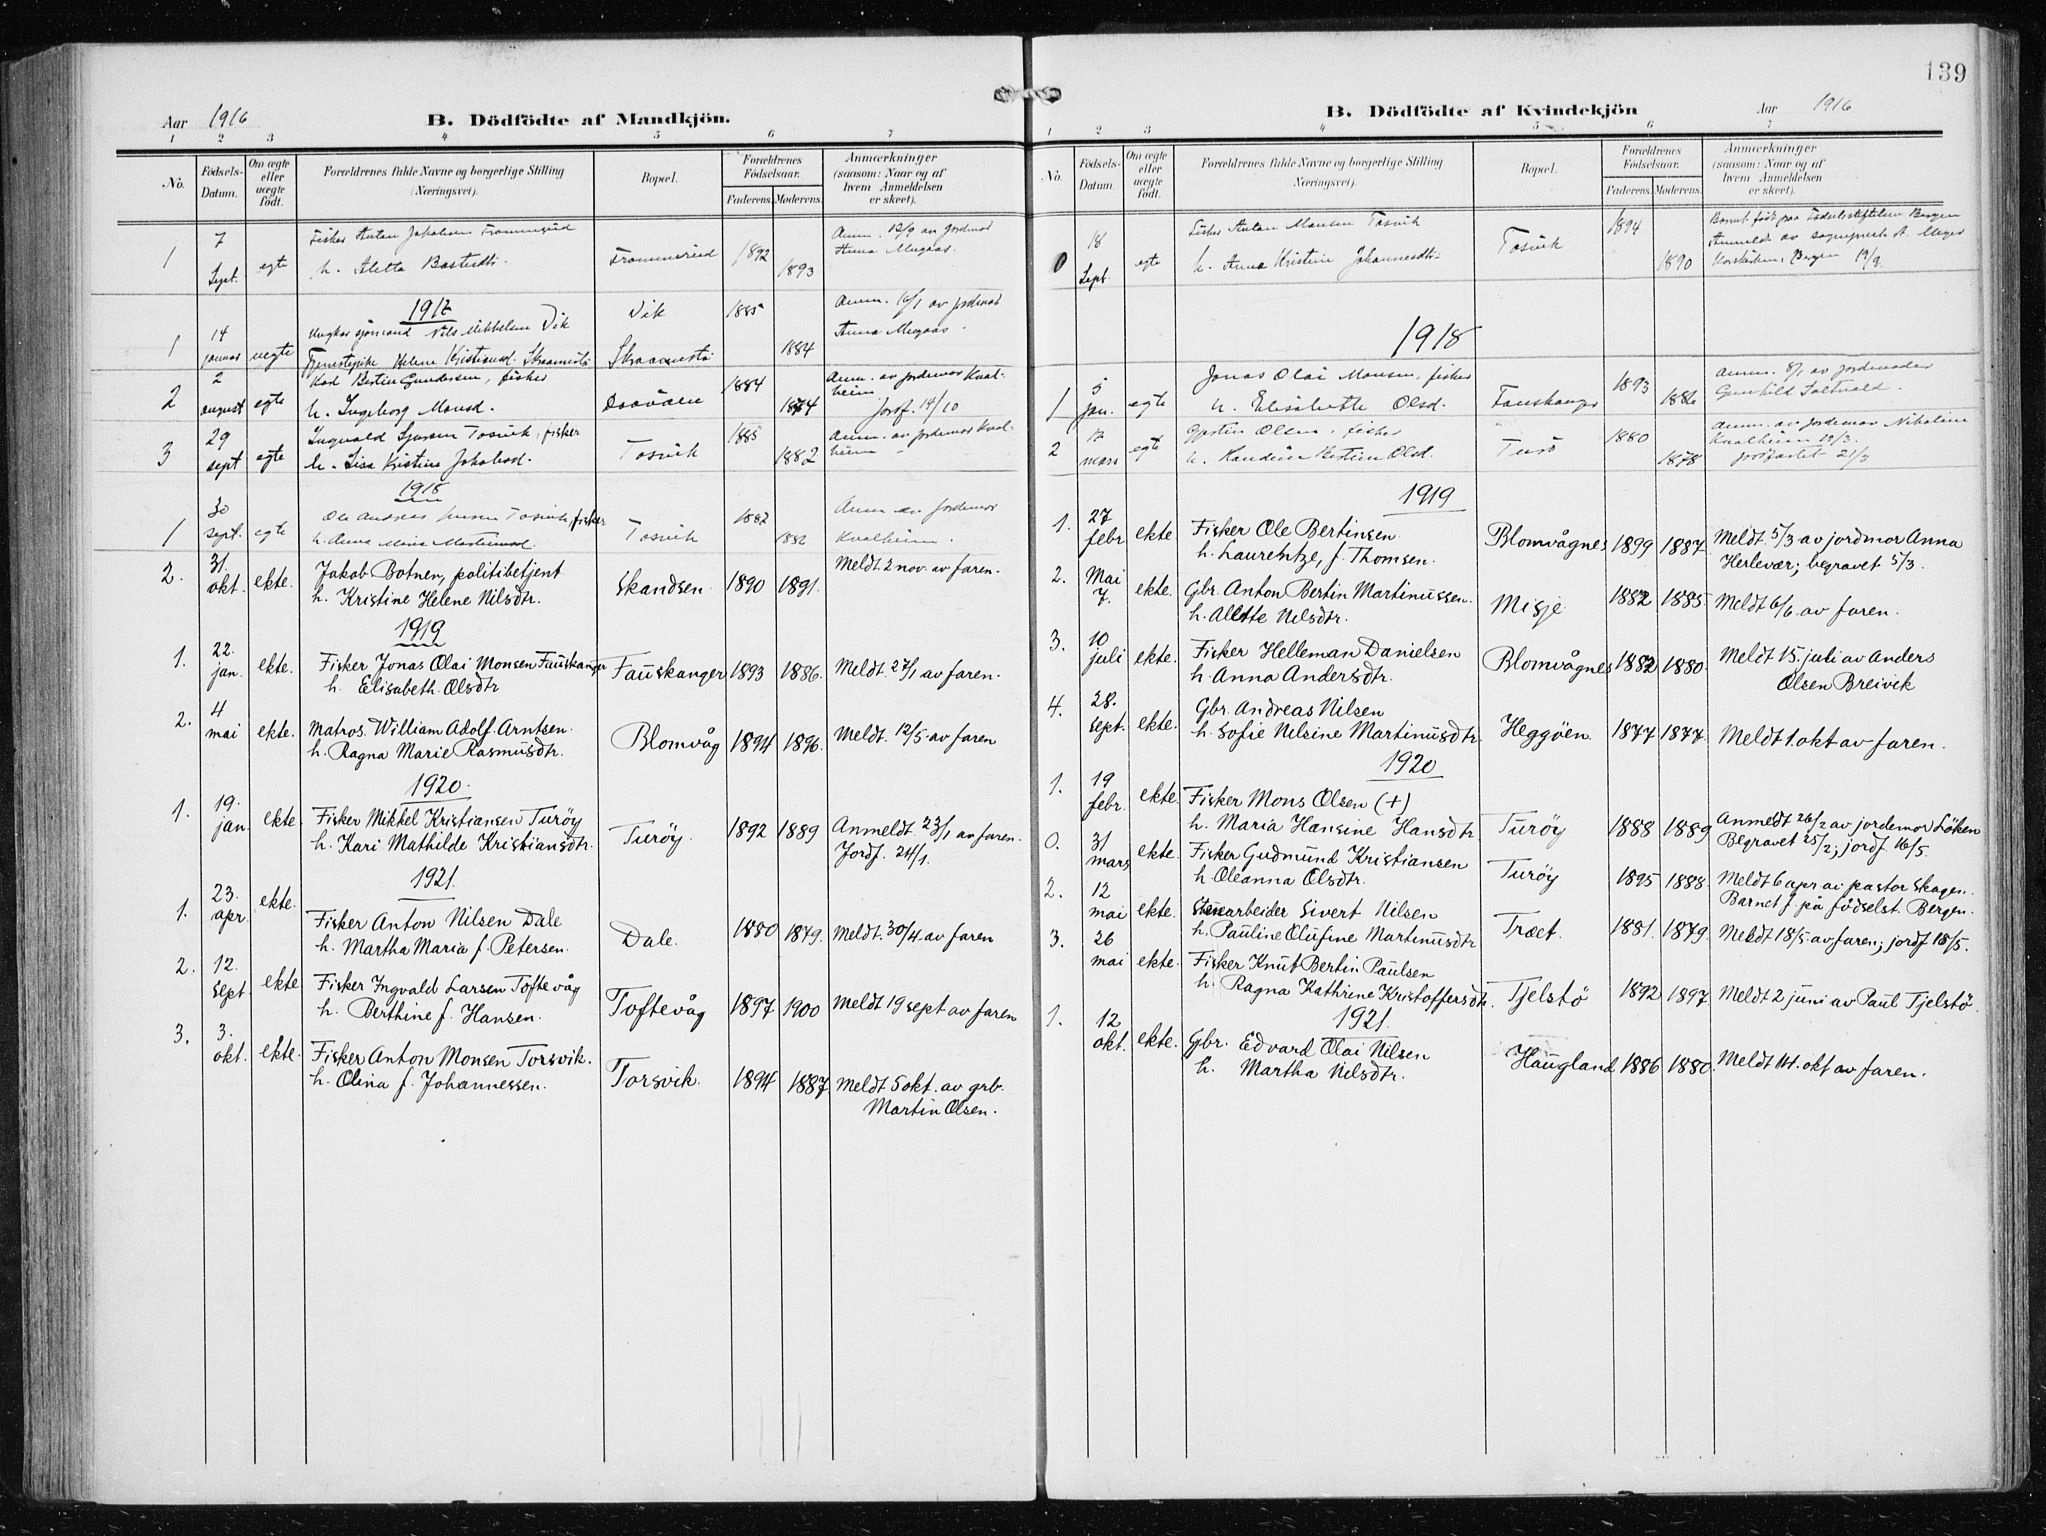 139
Aar 1916
B. Dödfödte af Mandkjön.
1 2 3 4 5 6 7
No.
Födsels-Datum.
Om ægte eller uægte födt.
Forældrenes fulde Navne og borgerlige Stilling (Næringsvei).
Bopæl.
Forældrenes Födselsaar.
Faderens. Moderens.
Anmærkninger (saasom: Naar og af hvem Anmeldelsen er skeet).
1 7 Sept. egte Fisker Anton Jakobsen
h. Aletta 1892 1893 Anm. 12/9 av jordmor
Anna Mugaas.
1917
1 14 januar uegte Ungkar sjömand Nils Mikkelsen Vik Vik 1885 Anm. 16/1 av jordmor
Tjenestepike Helene 1884 Anna Mugaas.
2 2 august egte Karl Bertin Gundersen, fisker 1884 Anm. av jordmor Kval-
h. Ingeborg Monsd. 1874 heim Jordf. 14/10
3 29 sept egte Ingvald Tosvik, fisker Tosvik 1885 Anm. av jordemor Kval-
h. Lisa Kristine Jakobsd. 1882 heim
1918
1 30 sept. egte Ole Andreas Tosvik, fisker Tosvik 1882 Anm av jordmor
h. Anna 1882 Kvalheim.
2. 31. okt. ekte. Jakob Botnen, politibetjent Skandsen 1890 1891. Meldt. 2 nov. av faren.
h. Kristine Helene Nilsdtr.
1919
1. 22. jan. ekte. Fisker Jonas Olai Monsen Fauskanger Fauskanger 1893 1886. Meldt. 27/1 av faren.
h. Elisabeth Olsdtr
2. 4 mai ekte. Matros. William Adolf. Arntsen. Blomvåg 1894 1896. Meldt. 12/5 av faren
h. Ragna Marie Rasmusdtr.
1920.
1. 19. jan. ekte. Fisker Mikkel Kristiansen Turöy Turöy. 1892 1889 Anmeldt 23/1 av faren.
h. Kari Mathilde Kristiansdtr. Jordf. 24/1.
1921.
1. 23. apr. ekte. Fisker Anton Nilsen Dale Dale. 1880 1879. Meldt. 30/4. av faren
h. Martha Maria f. Petersen.
2. 12. sept. ekte Fisker Ingvald Larsen Toftevåg Toftevåg 1897 1900 Meldt 19 sept av faren
h. Berthine f. Hansen.
3. 3. okt. ekte. Fisker Anton Monsen Torsvik. Torsvik. 1894 1887. Meldt 5 okt. av grb.
h. Olina f. Johannessen. Martin Olsen.
B. Dödfödte af Kvindekjön
Aar 1916
1 2 3 4 5 6 7
No.
Födsels-Datum.
Om ægte eller uægte födt.
Forældrenes fulde Navne og borgerlige Stilling (Næringsvei).
Bopæl.
Forældrenes Födselsaar.
Faderens. Moderens.
Anmærkninger (saasom: Naar og af hvem Anmeldelsen er skeet).
0 18 Sept. egte Fisker Anton Monsen Tosvik Tosvik 1894 Barnet født paa Fødselsstiftelsen Bergen
h. Anna Kristine Johannesdtr 1890 Anmeldt av sogneprest
Bergen 19/9.
1918
1 5 jan. egte Jonas Olai Monsen, fisker Fauskanger 1893 anm. 8/1 av jordemoder
h. Elisabeth Olsd. 1886 Gunhild
2 17 mars egte Gjertin Olsen, fisker Turö 1880 anm. av jordemor Nikoline
h. Bertine Olsd. 1878 Kvalheim 19/3.
jordfæstet 21/3
1919
1. 27 febr ekte Fisker Ole Bertinsen Blomvågnes 1899 1887. Meldt. 5/3 av jordmor Anna
h. Laurentze, f. Thomsen. Herlevær; begravet 5/3.
2. Mai 7. ekte. Gbr. Anton Bertin Martinussen. Misje 1882 1885. Meldt 6/6 av faren.
h. Alette Nilsdtr.
3. 10 juli ekte. Fisker Helleman Danielsen Blomvågnes 1882 1880 Meldt 15. juli av Anders
h. Anna Andersdtr. Olsen Breivik
4. 28. sept. ekte. Gbr. Andreas Nilsen Heggöen 1877 1877. Meldt 1. okt av faren.
h. Sofie Nilsine Martinusdtr
1920
1. 19 febr. ekte. Fisker Mons Olsen (+) Turöy 1888 1889 Anmeldt 26/2 av jordemor Löken
h. Maria Hansine Hansdtr. Begravet 25/2; jordf. 16/5.
0. 31 mars ekte. Fisker Gudmund Kristiansen Turöy 1895 1888. Meldt 6 apr av pastor Skagen.
h. Oleanna Olsdtr. Barnet f. på födselst. Bergen.
2. 12 mai ekte. Stenarbeider Sivert Nilsen Træet. 1881. 1879. Meldt 18/5 av faren; jordf 18/5.
h. Pauline Olufine Martinusdtr
3. 26 mai ekte. Fisker Knut Bertin Paulsen Tjelstö 1892 1897. Meldt 2 juni av Paul Tjelstö.
h. Ragna Kathrine Kristoffersdtr.
1921.
1. 12 okt. ekte. Gbr. Edvard Olai Nilsen Haugland 1886 1880. Meldt 14. okt av faren.
h. Martha Nilsdtr.